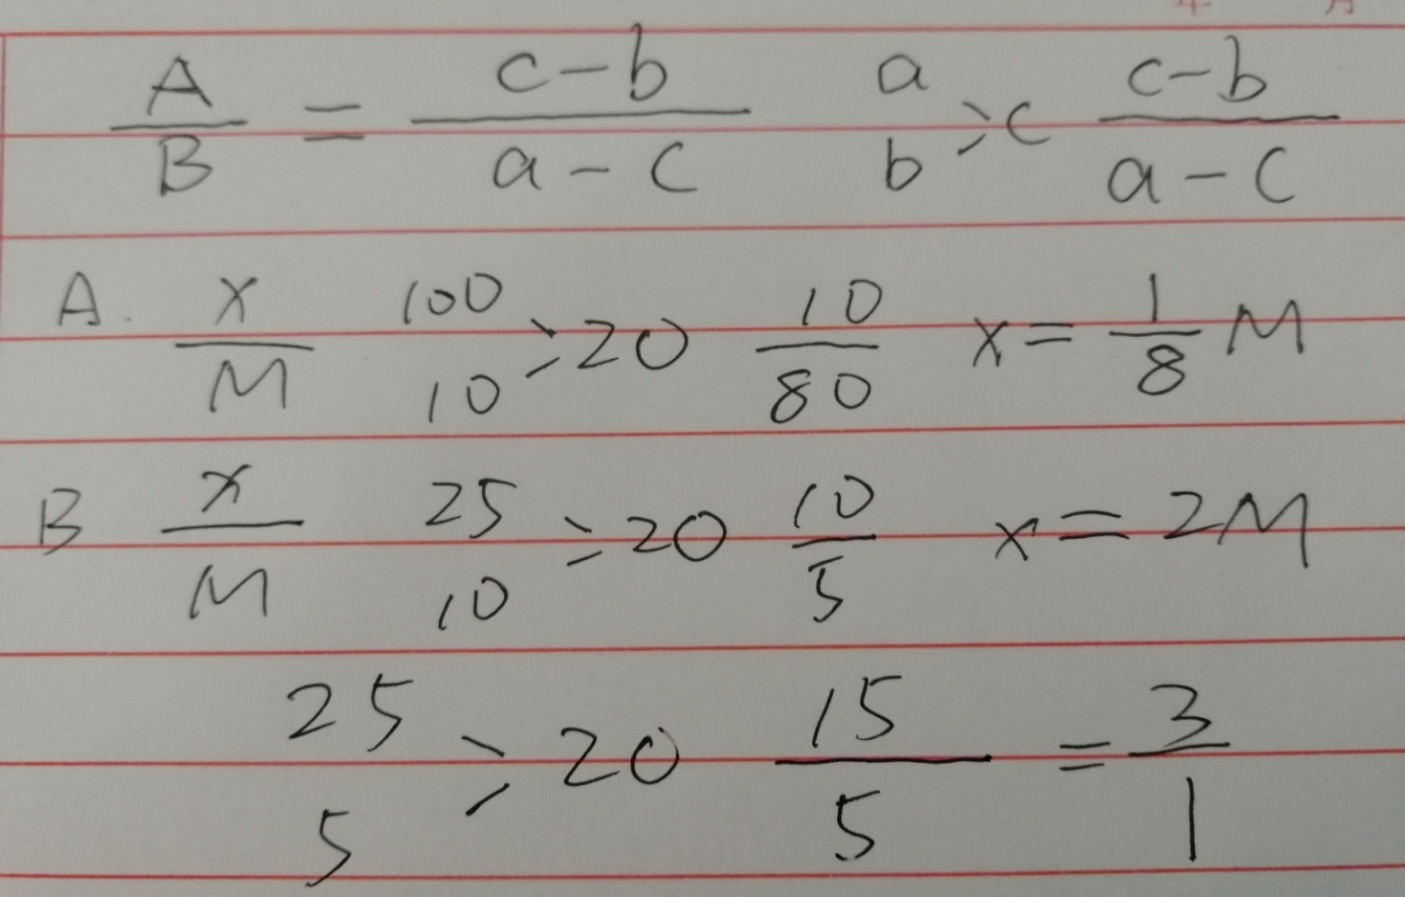 A/B = (c-b)/(a-c)   a b > c   (c-b)/(a-c)
A. x/M   100 10 > 20   10/80   x = 1/8 M
B x/M   25 10 > 20   10/5   x = 2M
25 5 > 20   15/5 = 3/1